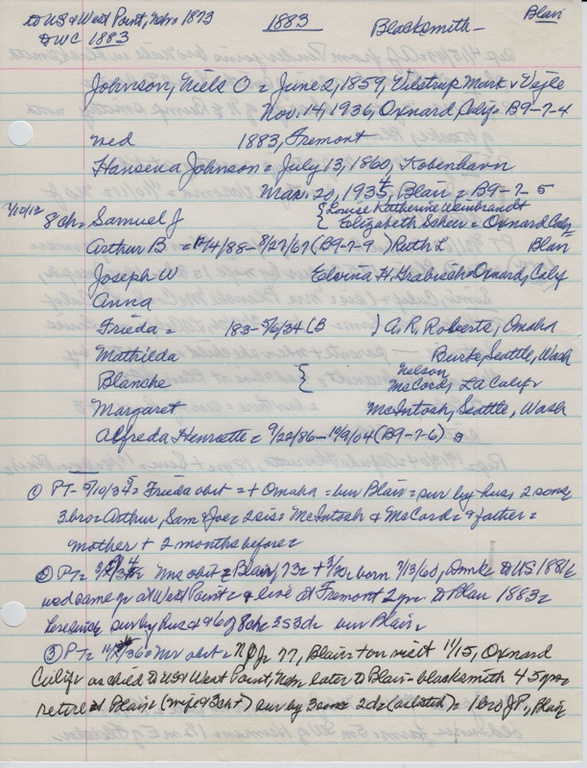 to US & West Point, Nebr 1873
1883
Blacksmith
Blair
DWC 1883
Johnson, Niels O = June 2, 1859, Vilstrup Mark, Vejle
Nov. 14, 1936, Oxnard, Calif = B9-7-4
wed 1883, Fremont
Hansena Johnson = July 13, 1860, Kobenhavn
Mar. 20, 1935, Blair = B9-7-5
8 ch = Samuel J { Louise Katherine Weinbrandt
Elizabeth = Oxnard Calif
Arthur B = 12/4/88-8/27/67 (B9-7-9 ) Ruth L Blair
Joseph W Elvina H. Grabiech = Oxnard, Calif
Anna
Frieda = 183-5/6/34 (B ) A. R. Roberts, Omaha
Mathilda Burke, Seattle, Wash
Blanche { Nelson
McCord, LA Calif
Margaret McIntosh, Seattle, Wash
Alfreda Henrette = 9/22/86-10/9/04 (B9-7-6)
① PT = Frieda obit = + Omaha = bur Blair = sur by hus, 2 sons
3 bro = Arthur, Sam & Joe = 2 sis = McIntosh & McCord = & father =
mother + 2 months before =
② PT = Mrs obit = Blair, 73 born 7/13/60, Dmk to US 1881
wed same yr at West Point & live at Fremont 2 yr to Blair 1883
sur by hus & 3s 3d bur Blair
③ PT = Mr obit = 77, Blair = + on visit 11/15, Oxnard
Calif as child to US & West Point, Nebr later to Blair = blacksmith 45 yrs
retired Blair (wife & 3 ch +) sur by 3 sons 2 d (as listed) = 1 bro J P, Blair